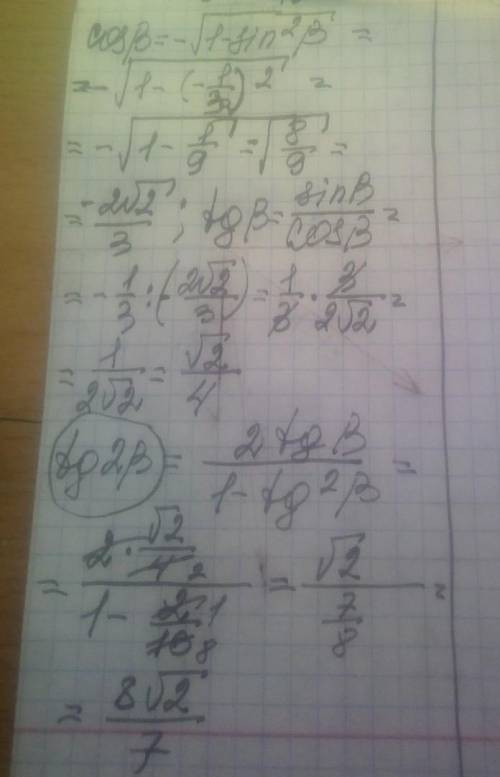 cosβ = -√(1-sin²β) =
= -√(1-(-1/3)²) =
= -√(1-1/9) = √(8/9) =
= -2√2/3 ; tgβ = sinβ/cosβ =
= -1/3 : (-2√2/3) = 1/3 · 3/2√2 =
= 1/2√2 = √2/4
tg2β = 2tgβ/(1-tg²β) =
= (2·√2/4 2)/(1-2/16 1/8) = √2/(7/8) =
= 8√2/7